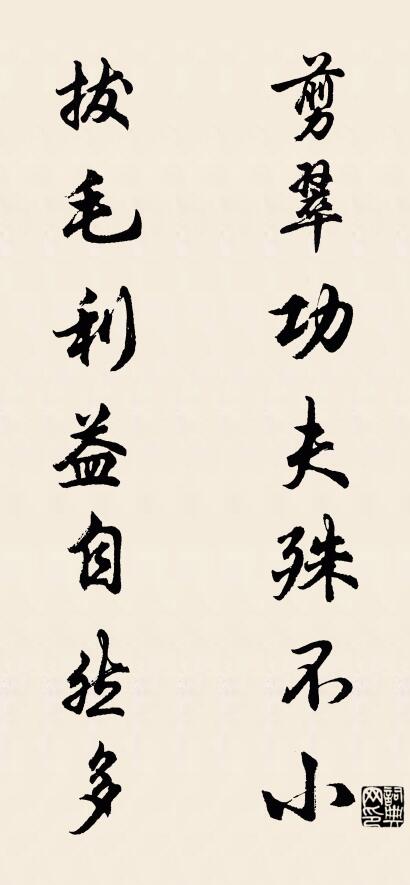 剪翠功夫殊不小
拔毛利益自然多
詞典网印